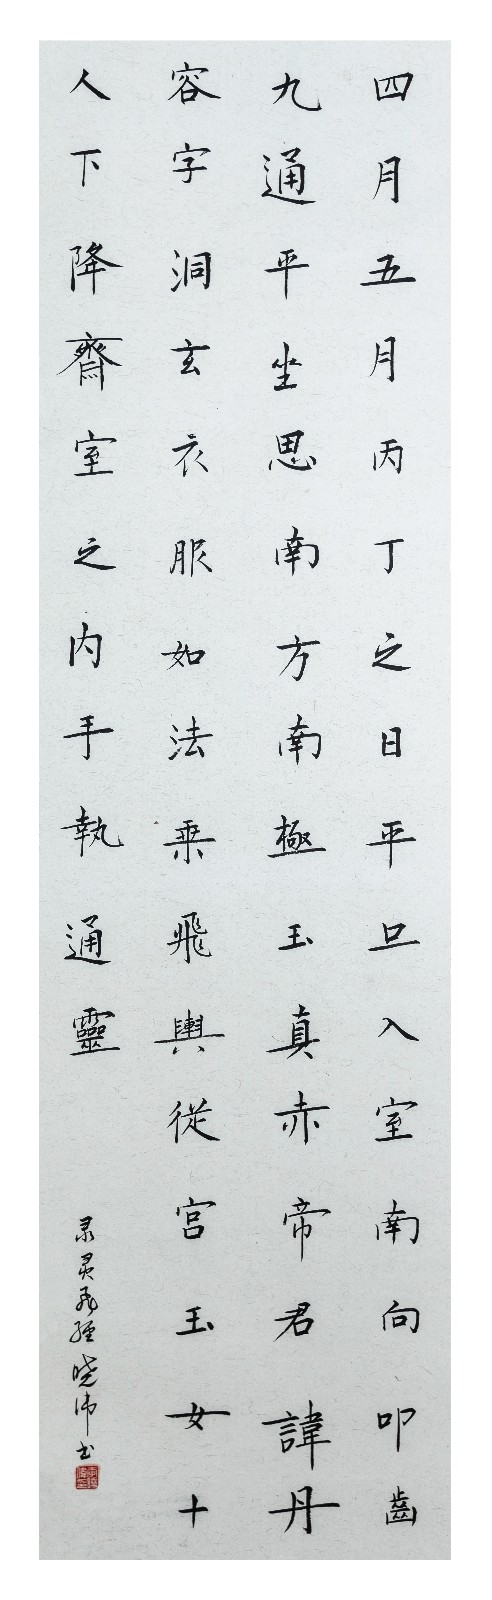 四月五月丙丁之日平旦入室南向叩齒
九通平坐思南方南極玉真赤帝君諱丹
容字洞玄衣服如法乘飛輿從宮玉女十
人下降齋室之內手執通靈
录灵飞经晓沛书